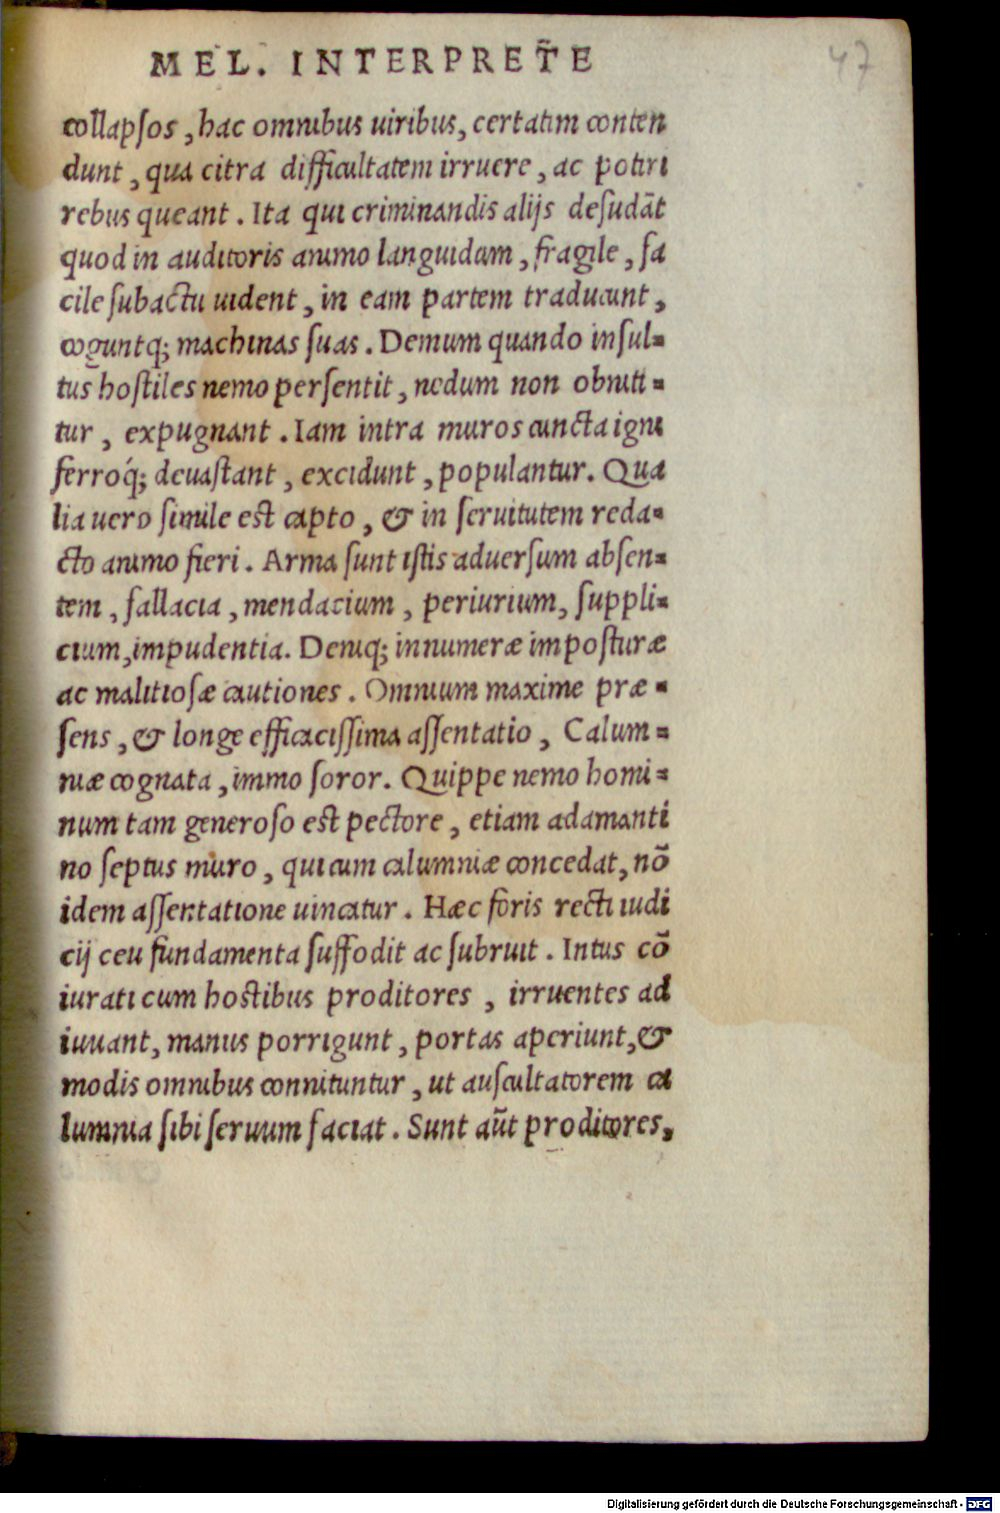 MEL. INTERPRET̃E
47
collapſos, hac omnibus uiribus, certatim conten
dunt, qua citra difficultatem irruere, ac potiri
rebus queant. Ita qui criminandis alijs deſudãt
quod in auditoris animo languidum, fragile, fa
cile ſubactu uident, in eam partem traducunt,
coguntq; machinas ſuas. Demum quando inſul-
tus hoſtiles nemo perſentit, nedum non obniti-
tur, expugnant. Iam intra muros cuncta igni
ferroq́; deuaſtant, excidunt, populantur. Qua
lia uero ſimile est capto, & in ſeruitutem reda-
cto animo fieri. Arma ſunt iſtis aduerſum abſen-
tem, fallacia, mendacium, periurium, ſuppli-
cium, impudentia. Deniq; innumeræ impoſturæ
ac malitioſæ cautiones. Omnium maxime præ-
ſens, & longe efficaciſſima aſſentatio, Calum-
niæ cognata, immo ſoror. Quippe nemo homi-
num tam generoſo est pectore, etiam adamanti
no ſeptus muro, qui cum calumniæ concedat, nõ
idem aſſentatione uincatur. Hæc foris recti iudi
cij ceu fundamenta ſuffodit ac ſubruit. Intus cõ
iurati cum hostibus proditores, irruentes ad
iuuant, manus porrigunt, portas aperiunt, &
modis omnibus connituntur, ut auſcultatorem ca
lumnia ſibi ſeruum faciat. Sunt aũt proditores,
Digitalisierung gefördert durch die Deutsche Forschungsgemeinschaft - DFG